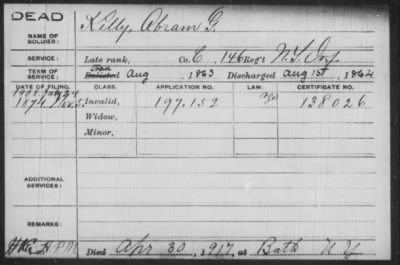 DEAD
NAME OF SOLDIER: Killy, Abram G.
SERVICE: Late rank, Co. C, 146 Reg't N.Y. Inf.
TERM OF SERVICE: Enlisted Aug , 1863 Discharged Aug 1st , 1864
DATE OF FILING. CLASS. APPLICATION NO. LAW. CERTIFICATE NO.
1874 Nov. 5 Invalid, 197.152 138026
Widow,
Minor,
ADDITIONAL SERVICES:
REMARKS:
Died Apr 30 , 1917, at Bath N.Y.